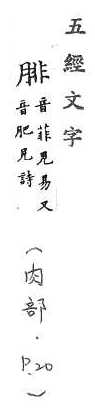 五經文字
腓音菲見易又
音肥見詩
(肉部.P.20)